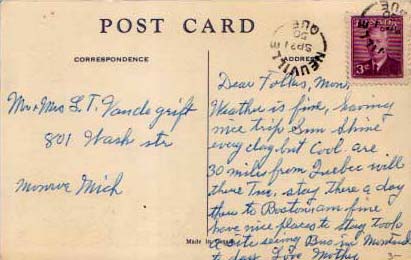 POST CARD
CORRESPONDENCE
ADDRESS
NEUVILLE
SP 21
50
QUE
3¢
Mr & Mrs L. T. Vandegrift
801 Wash str
Monroe Mich
Dear Folks, Mon,
Weather is fine, having
nice trip Sun Shine
every day but Cool. are
30 miles from Quebec will
there Tue, stay there a day
then to Boston, am fine
have nice places to stay took
a site seeing Bus in Montreal
to day Love Mother
Made in
3-